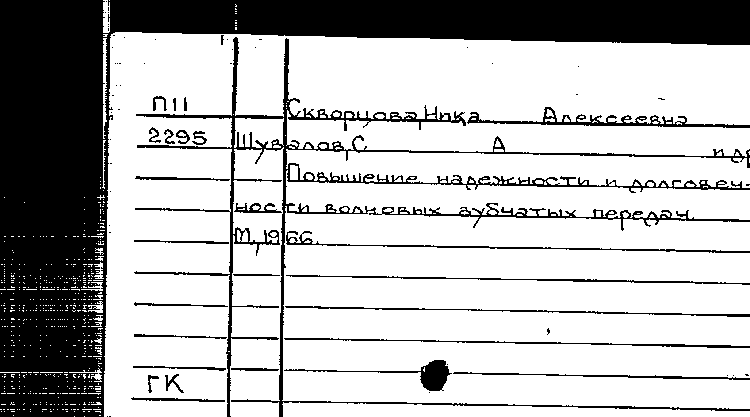 П11 Скворцова, Нина Алексеевна
2295 Шувалов, С А и др
Повышение надежности и долговеч-
ности волновых зубчатых передач.
М., 1966.
ГК